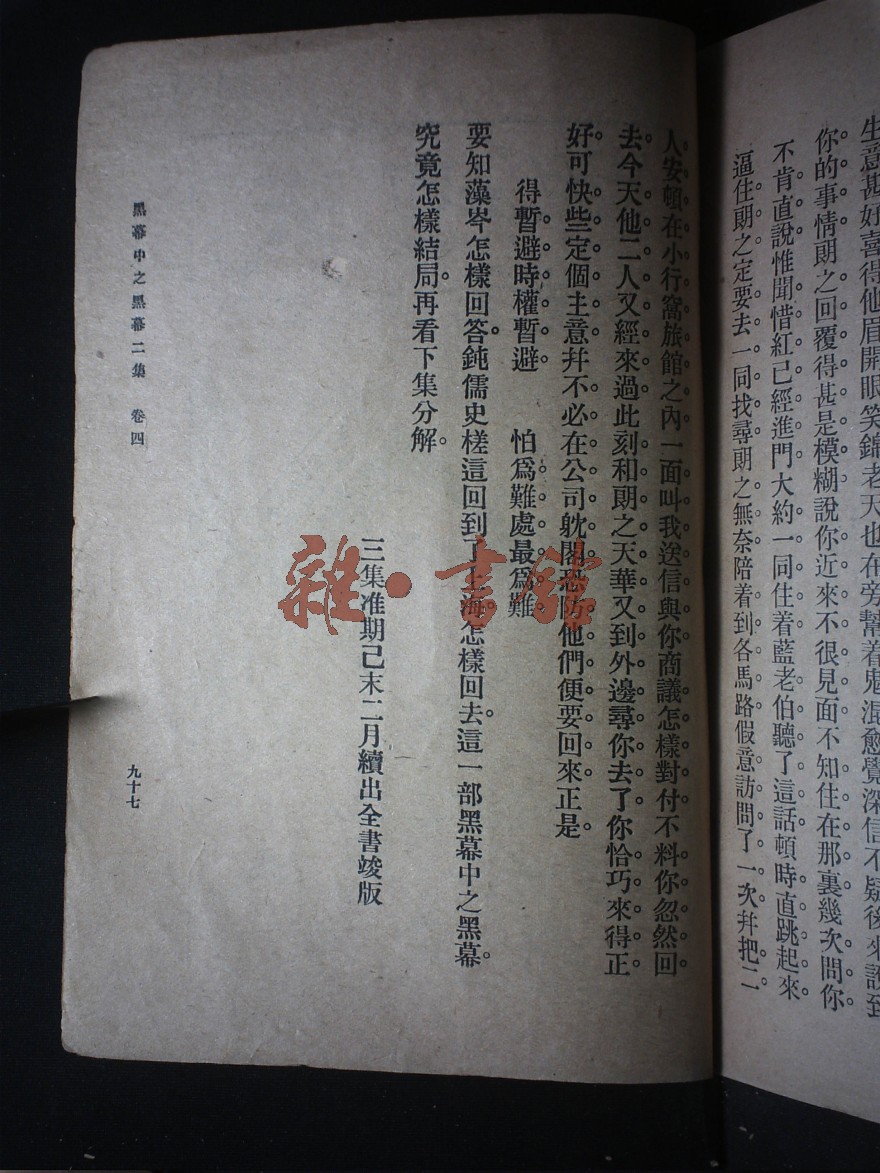 生意甚好喜得他眉開眼笑錦老天也在旁幫着鬼混愈覺深信不疑後來說到
你的事情。朗之回覆得甚是模糊。說你近來不很見面。不知住在那裏。幾次問你。
不肯直說。惟聞惜紅已經進門。大約一同住着。藍老伯聽了這話。頓時直跳起來
逼住朗之定要去一同找尋。朗之無奈。陪着到各馬路假意訪問了一次。并把二
人安頓在小行窩旅館之內。一面叫我送信與你。商議怎樣對付。不料你忽然回
去。今天他二人又經來過。此刻和朗之天華又到外邊尋你去了。你恰巧來得正
好。可快些定個主意。并不必在公司躭閣。恐防他們便要回來。正是。
得暫避時權暫避 怕爲難處最爲難
要知藻岑怎樣回答。鈍儒史槎這回到了上海。怎樣回去。這一部黑幕中之黑幕。
究竟怎樣結局。再看下集分解。
三集准期己末二月續出全書竣版
黑幕中之黑幕二集 卷四
九十七
雜·書館